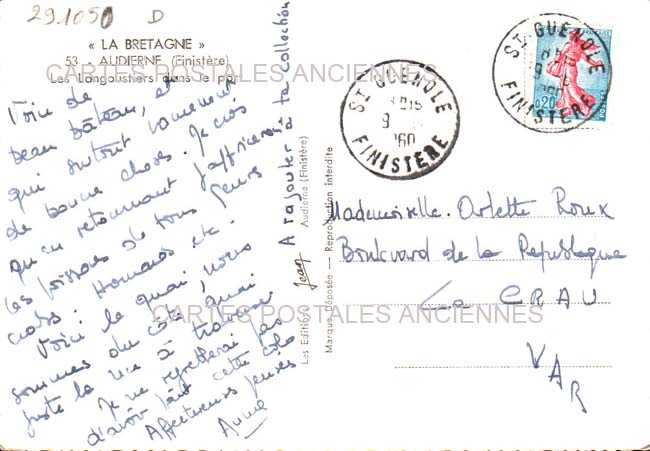 291050 D
« LA BRETAGNE »
53 - AUDIERNE (Finistère)
Les Langoustiers dans le port
CARTES POSTALES ANCIENNES
Voici de
beau bâteau, et
qui surtout ramènent
de bonne choses. Je crois
qu'en retournant j'apprécierai
les poissons de tous genres
crabs. Homards etc.
Voici le quai, nous
sommes du côté quai
juste la vue à travers
Je ne regretterai pas
d'avoir fait cette côte
Affectueuses pensées
Anne
A rajouter à ta collection
Les Editions Jean Audierne (Finistère)
Marque Déposée — Reproduction interdite
ST GUENOLE
9
1960
FINISTERE
ST GUENOLE
FINISTERE
0,20
POSTES
Mademoiselle Arlette Roux
Boulevard de la République
La CRAU
VAR
CARTES POSTALES ANCIENNES